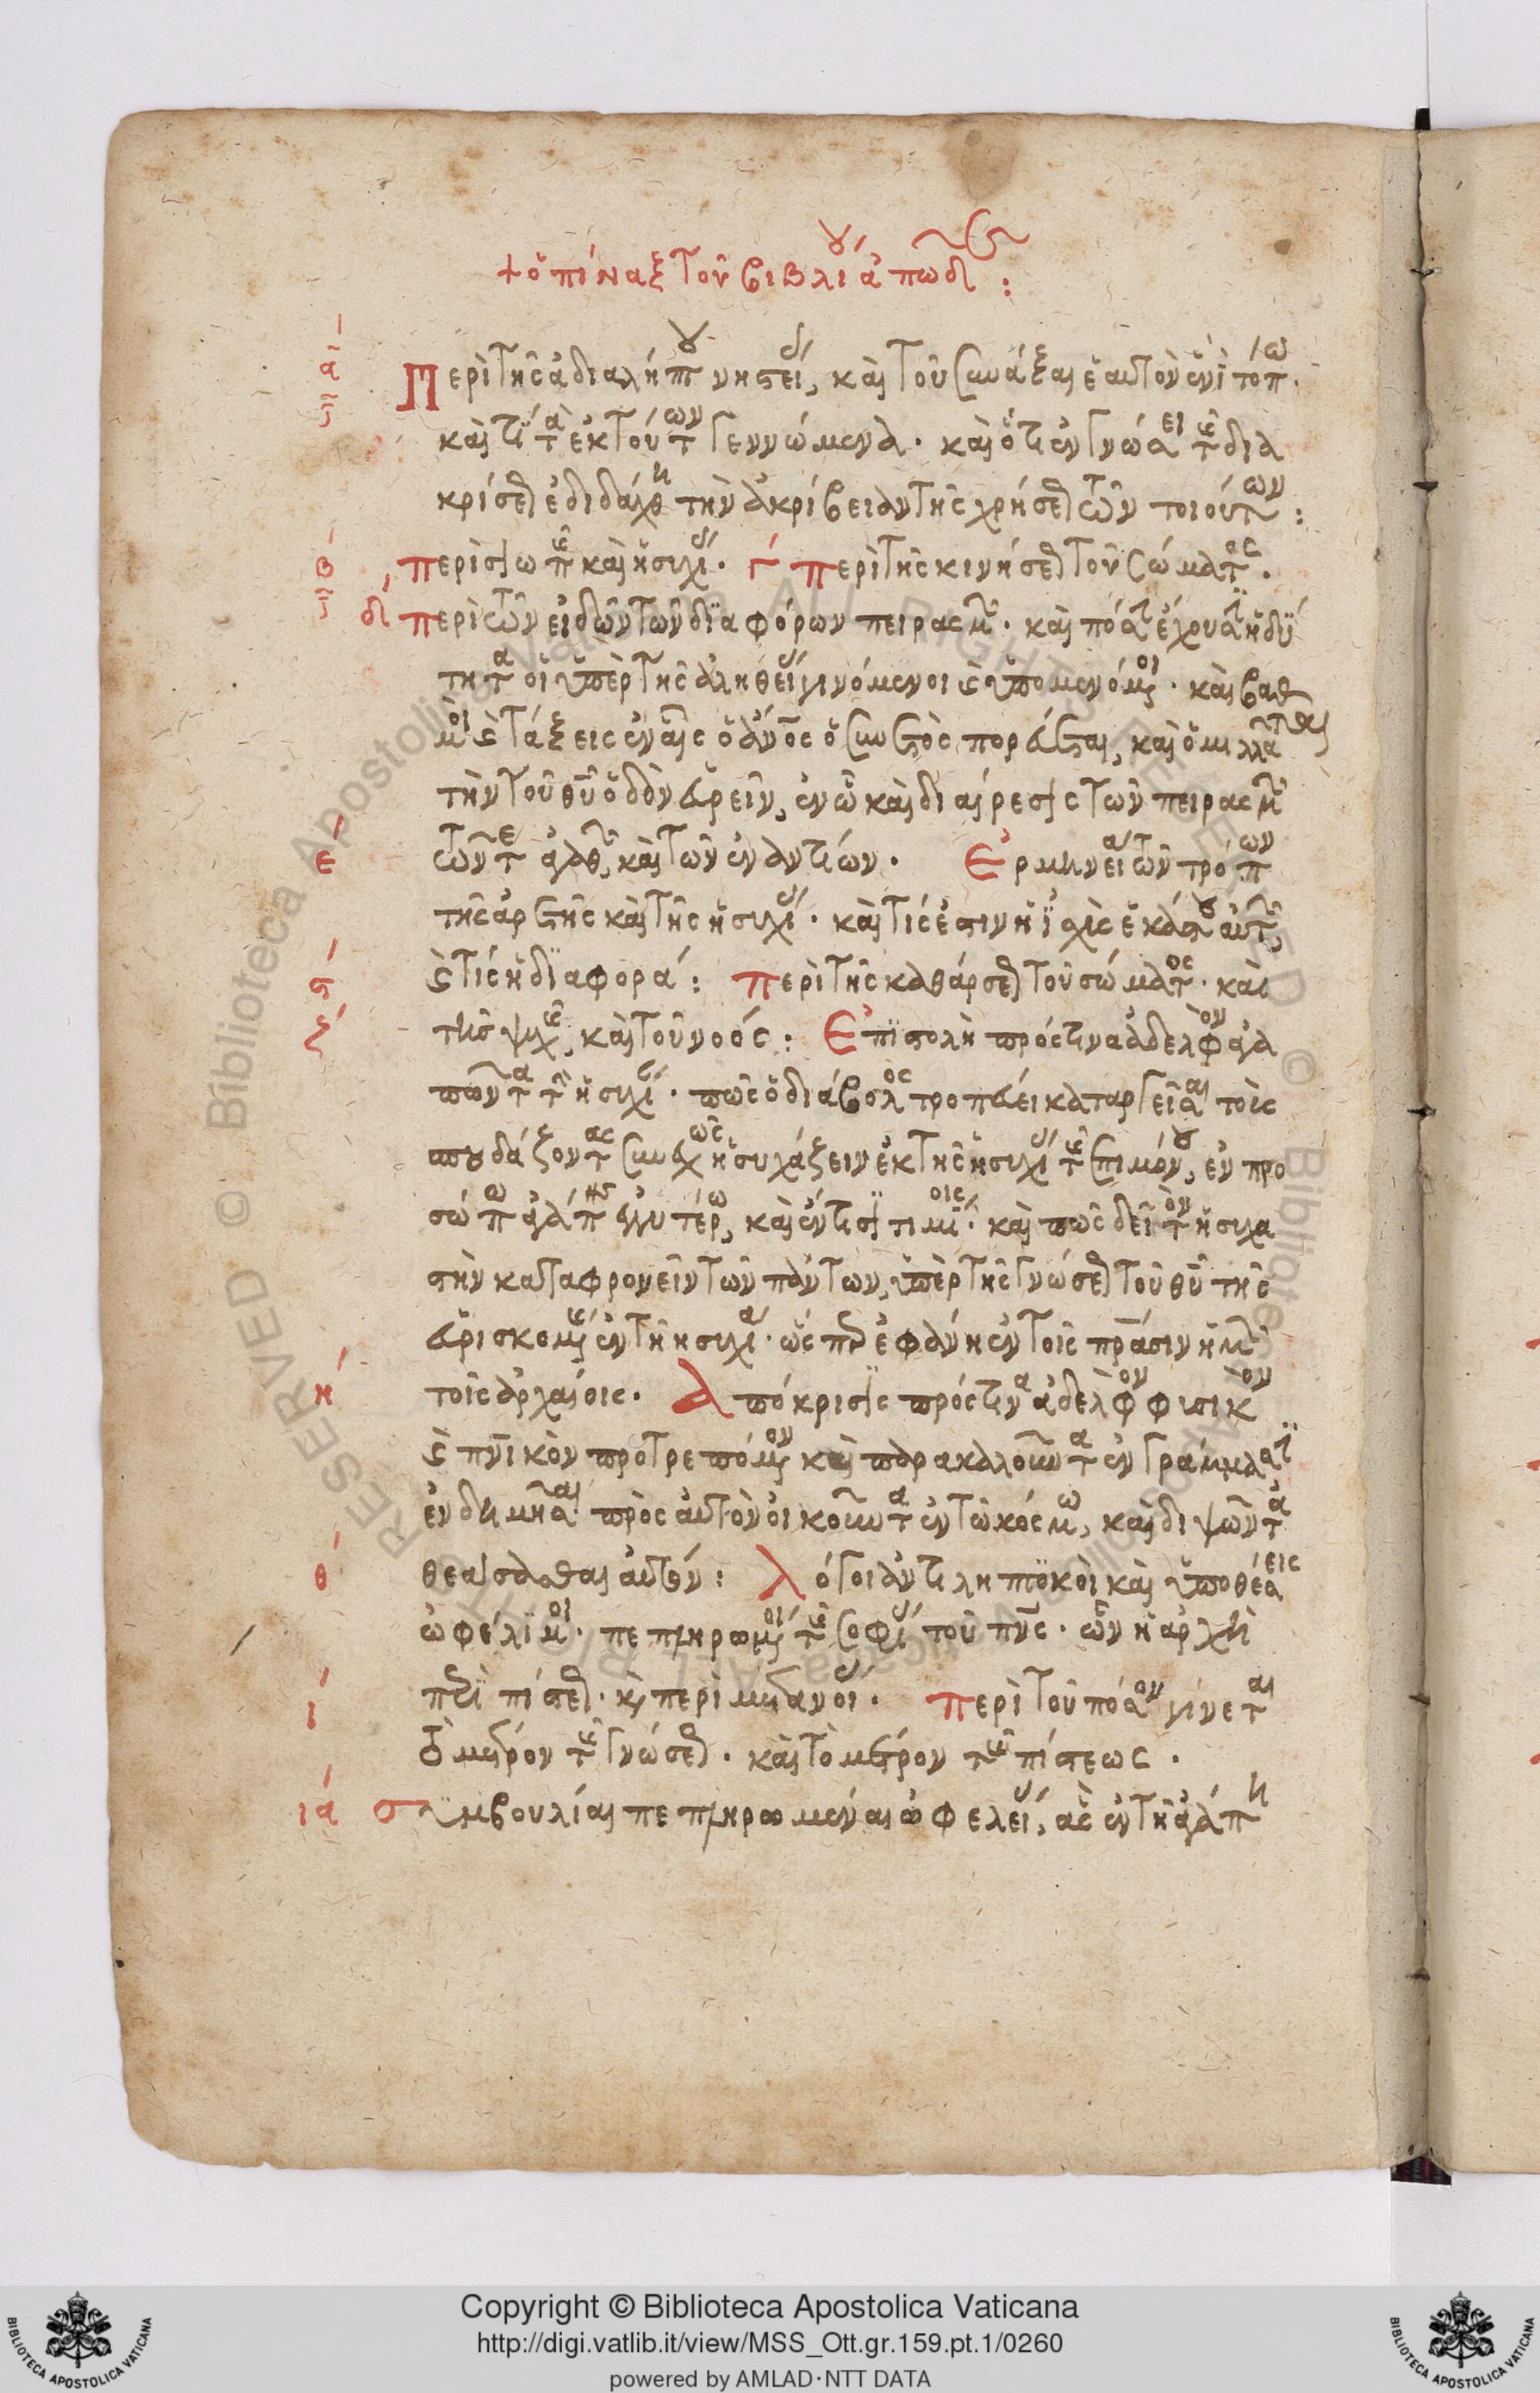 + ὁ πίναξ τοῦ βιβλίου ἀπῶδε :
α Περὶ τῆς ἀδιαλήπτου νηστείας, καὶ τοῦ συνάξαι ἑαυτὸν ἐνὶ τόπω.
καὶ τί τὰ ἐκ τούτων γεννώμενα. καὶ ὅτι ἐν γνώσει τῆς δια
κρίσεως ἐδιδάχθη τὴν ἀκρίβειαν τῆς χρήσεως τῶν τοιούτων :
β περὶ σιωπῆς καὶ ἡσυχίας. γ περὶ τῆς κινήσεως τοῦ σώματος.
δ περὶ τῶν εἰδῶν τῶν διαφόρων πειρασμῶν. καὶ πόσην ἔχουσιν ἡδύ
τητα οἱ ὑπὲρ τῆς ἀληθείας γινόμενοι καὶ ὑπομενόμενοι. καὶ βαθ
μοὶ καὶ τάξεις ἐν αἷς ὁ ἄνθρωπος ὁ συνετὸς πορεύεται,
τὴν τοῦ θεοῦ ὁδὸν εὑρεῖν, ἐν ᾧ καὶ διαίρεσις τῶν πειρασμῶν
ε τῶν τε ἀγαθῶν, καὶ τῶν ἐναντίων. Ἑρμηνεία τῶν τρόπων
τῆς ἀρετῆς καὶ τῆς ἡσυχίας. καὶ τίς ἐστιν ἡ ἰσχὺς ἑκάστου αὐτῶν,
ϛ καὶ τίς ἡ διαφορά : περὶ τῆς καθάρσεως τοῦ σώματος. καὶ
ζ τῆς ψυχῆς, καὶ τοῦ νοός : Ἐπιστολὴ πρός τινα ἀδελφὸν ἀγα
πῶντα τὴν ἡσυχίαν. πῶς ὁ διάβολος τροπεύει καταργεῖσαι τοὺς
σπουδάζοντας συνεχῶς ἡσυχάζειν ἐκ τῆς ἡσυχίας τῆς ἐπιμόνου, ἐν προ
σώπω ἀγάπης καὶ ἔν τισι τιμίοις. καὶ πῶς δεῖ τὸν ἡσυχα
στὴν καταφρονεῖν τῶν πάντων, ὑπὲρ τῆς γνώσεως τοῦ θεοῦ τῆς
εὑρισκομένης ἐν τῇ ἡσυχία. ὥσπερ ἐφάνη ἐν τοῖς πατράσιν ἡμῶν
η τοῖς ἀρχαίοις. Ἀπόκρισις πρός τινα ἀδελφὸν φυσικὸν
καὶ πνευματικὸν προτρεπόμενον καὶ παρακαλοῦντα ἐν γράμμασιν
ἐνδημῆσαι πρὸς αὐτὸν οἰκοῦντα ἐν τῷ κόσμω, καὶ διψῶντα
θ θεάσασθαι αὐτόν : Λόγοι ἀντιληπτικοὶ καὶ ὑποθέσεις
ὠφέλιμοι. πεπληρωμένοι τῆς σοφίας τοῦ πνεύματος. ὧν ἡ ἀρχὴ
ι περὶ πίστεως. καὶ περὶ μετανοίας. περὶ τοῦ πόσον γίνεται
τὸ μέτρον τῆς γνώσεως. καὶ τὸ μέτρον τῆς πίστεως.
ια συμβουλίαι πεπληρωμέναι ὠφελείας, ἃς ἐν τῇ ἀγάπη
Copyright © Biblioteca Apostolica Vaticana
http://digi.vatlib.it/view/MSS_Ott.gr.159.pt.1/0260
powered by AMLAD·NTT DATA